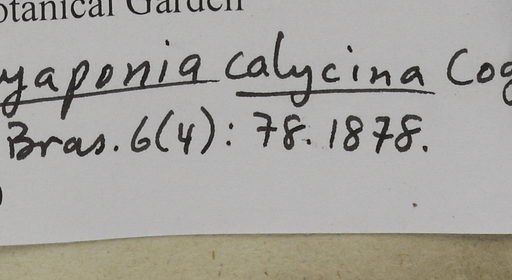 otanical Garden
yaponia calycina Cog
Bras. 6(4): 78. 1878.
)